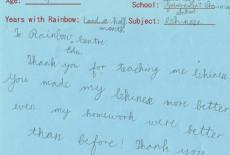 Age:
School:
School
Years with Rainbow: half
month
Subject: Chinese
To Rainbow Centre
Edu.
Thank you for teaching me Chinese
You made my Chinese more better
even my homework were better
than before! Thank you